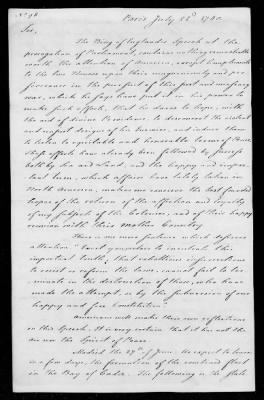 No. 98
Paris July 22d 1780.
Sir,
The King of England's Speech at the
prorogation of Parliament, contains nothing remarkable
worth the attention of America, except Compliments
to the two Houses upon their magnanimity and per-
severance in the prosecution of this just and necessary
war, which he says have put it in his power to
make such efforts, that he dares to hope, with
the aid of divine Providence, to disconcert the violent
and unjust designs of his Enemies, and induce them
to listen to equitable and honorable terms of Peace
that efforts have already been followed by success
both by Sea and Land and the happy and impor-
tant turn, which affairs have lately taken in
North America, makes me conceive the best founded
hopes of the return of the affection and loyalty
of my subjects of the Colonies, and of their happy
reunion with their Mother Country
There is one more sentence which deserves
attention "I cant you to inculcate this
important truth, that rebellious insurrections
to resist or reform the Laws, cannot fail to ter-
minate in the destruction of those, who have
made the attempt, or by the subversion of our
happy and free Constitution"
Americans will make their own reflections
on this Speech. It is very certain that it has not the
air nor the Spirit of Peace.
Madrid the 27th of June. We expect to learn
in a few days, the formation of the combined fleet
in the Bay of Cadiz. The following is the State